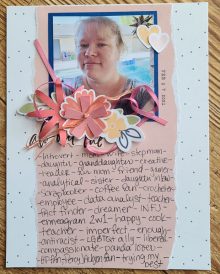 FEB 17 2022
all of me
- introvert - mom - wife - stepmom -
daughter - granddaughter - creative -
reader - fun mom - friend - runner -
analytical - sister - daughter in law
scrapbooker - coffee fan - crocheter
employee - data analyst - teacher
fact finder - dreamer - INFJ -
enneagram 2w1 - happy - cook -
teacher - imperfect - enough -
antiracist - LGBTQIA ally - liberal
compassionate - panda lover -
- trying my
best -